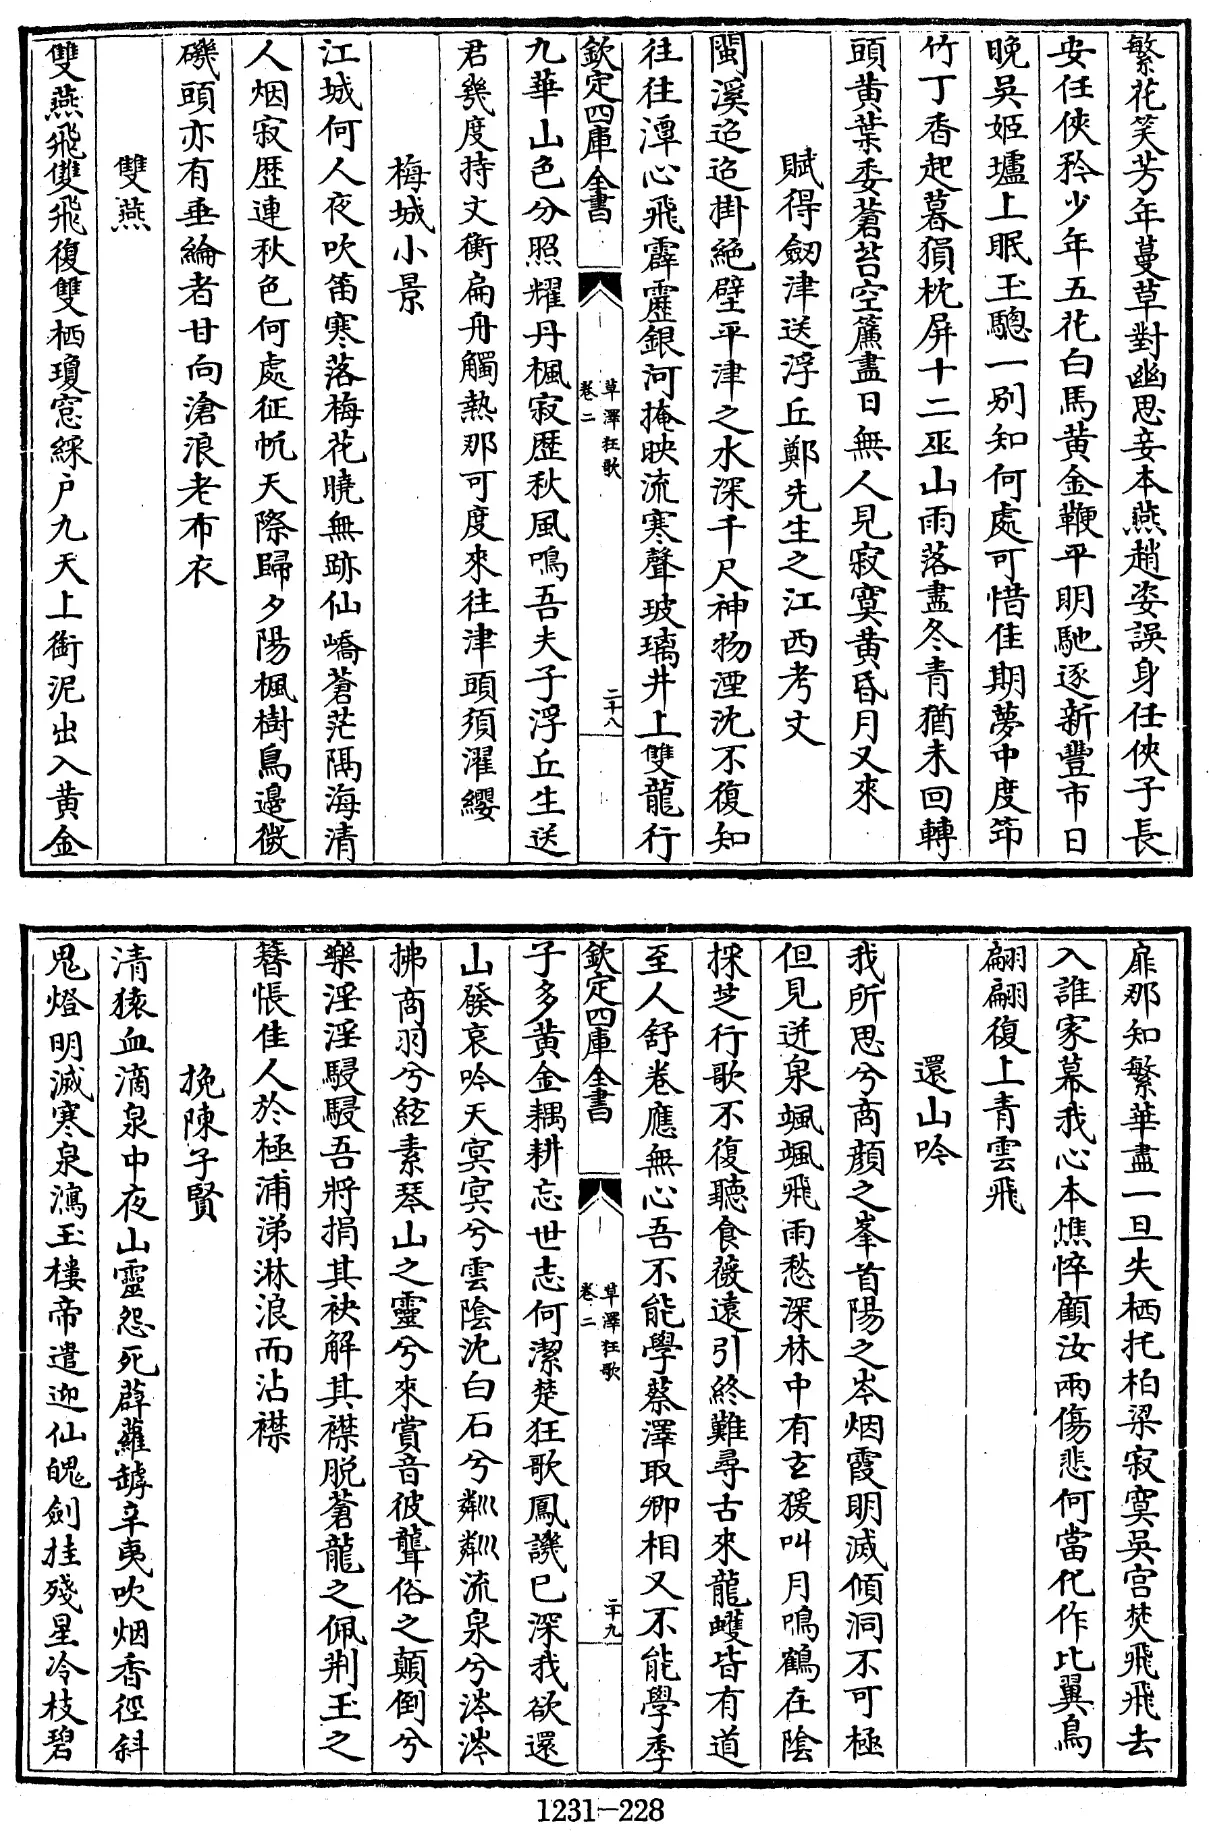 繁花笑芳年蔓草對幽思妾本燕趙姿誤身任俠子長
安任俠矜少年五花白馬黄金鞭平明馳逐新豐市日
晚吳姬壚上眠玉驄一别知何處可惜佳期夢中度笻
竹丁香起暮猿枕屏十二巫山雨落盡冬青猶未回轉
頭黄葉委蒼苔空簾盡日無人見寂寞黄昏月又來
賦得劒津送浮丘鄭先生之江西考文
閩溪迢迢掛絶壁平津之水深千尺神物湮沈不復知
往往潭心飛霹靂銀河掩映流寒聲玻璃井上雙龍行
欽定四庫全書
草澤狂歌
卷二
二十八
九華山色分照耀丹楓寂歴秋風鳴吾夫子浮丘生送
君幾度持文衡扁舟觸熱那可度來往津頭須濯纓
梅城小景
江城何人夜吹笛寒落梅花曉無跡仙嶠蒼茫隔海清
人烟寂歴連秋色何處征帆天際歸夕陽楓樹鳥邉微
磯頭亦有垂綸者甘向滄浪老布衣
雙燕
雙燕飛雙飛復雙栖瓊窓綵户九天上銜泥出入黄金
扉那知繁華盡一旦失栖托柏梁寂寞吳宫焚飛飛去
入誰家幕我心本憔悴顧汝兩傷悲何當化作比翼鳥
翩翩復上青雲飛
還山吟
我所思兮商顔之峯首陽之岑烟霞明滅傾洞不可極
但見迸泉颯颯飛雨愁深林中有玄猨叫月鳴鶴在陰
採芝行歌不復聽食薇遠引終難尋古來龍蠖皆有道
至人舒卷應無心吾不能學蔡澤取卿相又不能學季
欽定四庫全書
草澤狂歌
卷二
二十九
子多黄金耦耕忘世志何潔楚狂歌鳳譏已深我欲還
山發哀吟天冥冥兮雲陰沈白石兮粼粼流泉兮涔涔
拂商羽兮絃素琴山之靈兮來賞音彼聾俗之顛倒兮
樂淫淫駸駸吾將捐其袂解其襟脱蒼龍之佩荆玉之
簪悵佳人於極浦涕淋浪而沾襟
挽陳子賢
清猿血滴泉中夜山靈怨死薜蘿罅辛夷吹烟香徑斜
鬼燈明滅寒泉瀉玉樓帝遣迎仙魄劍挂殘星冷枝碧
1231-228